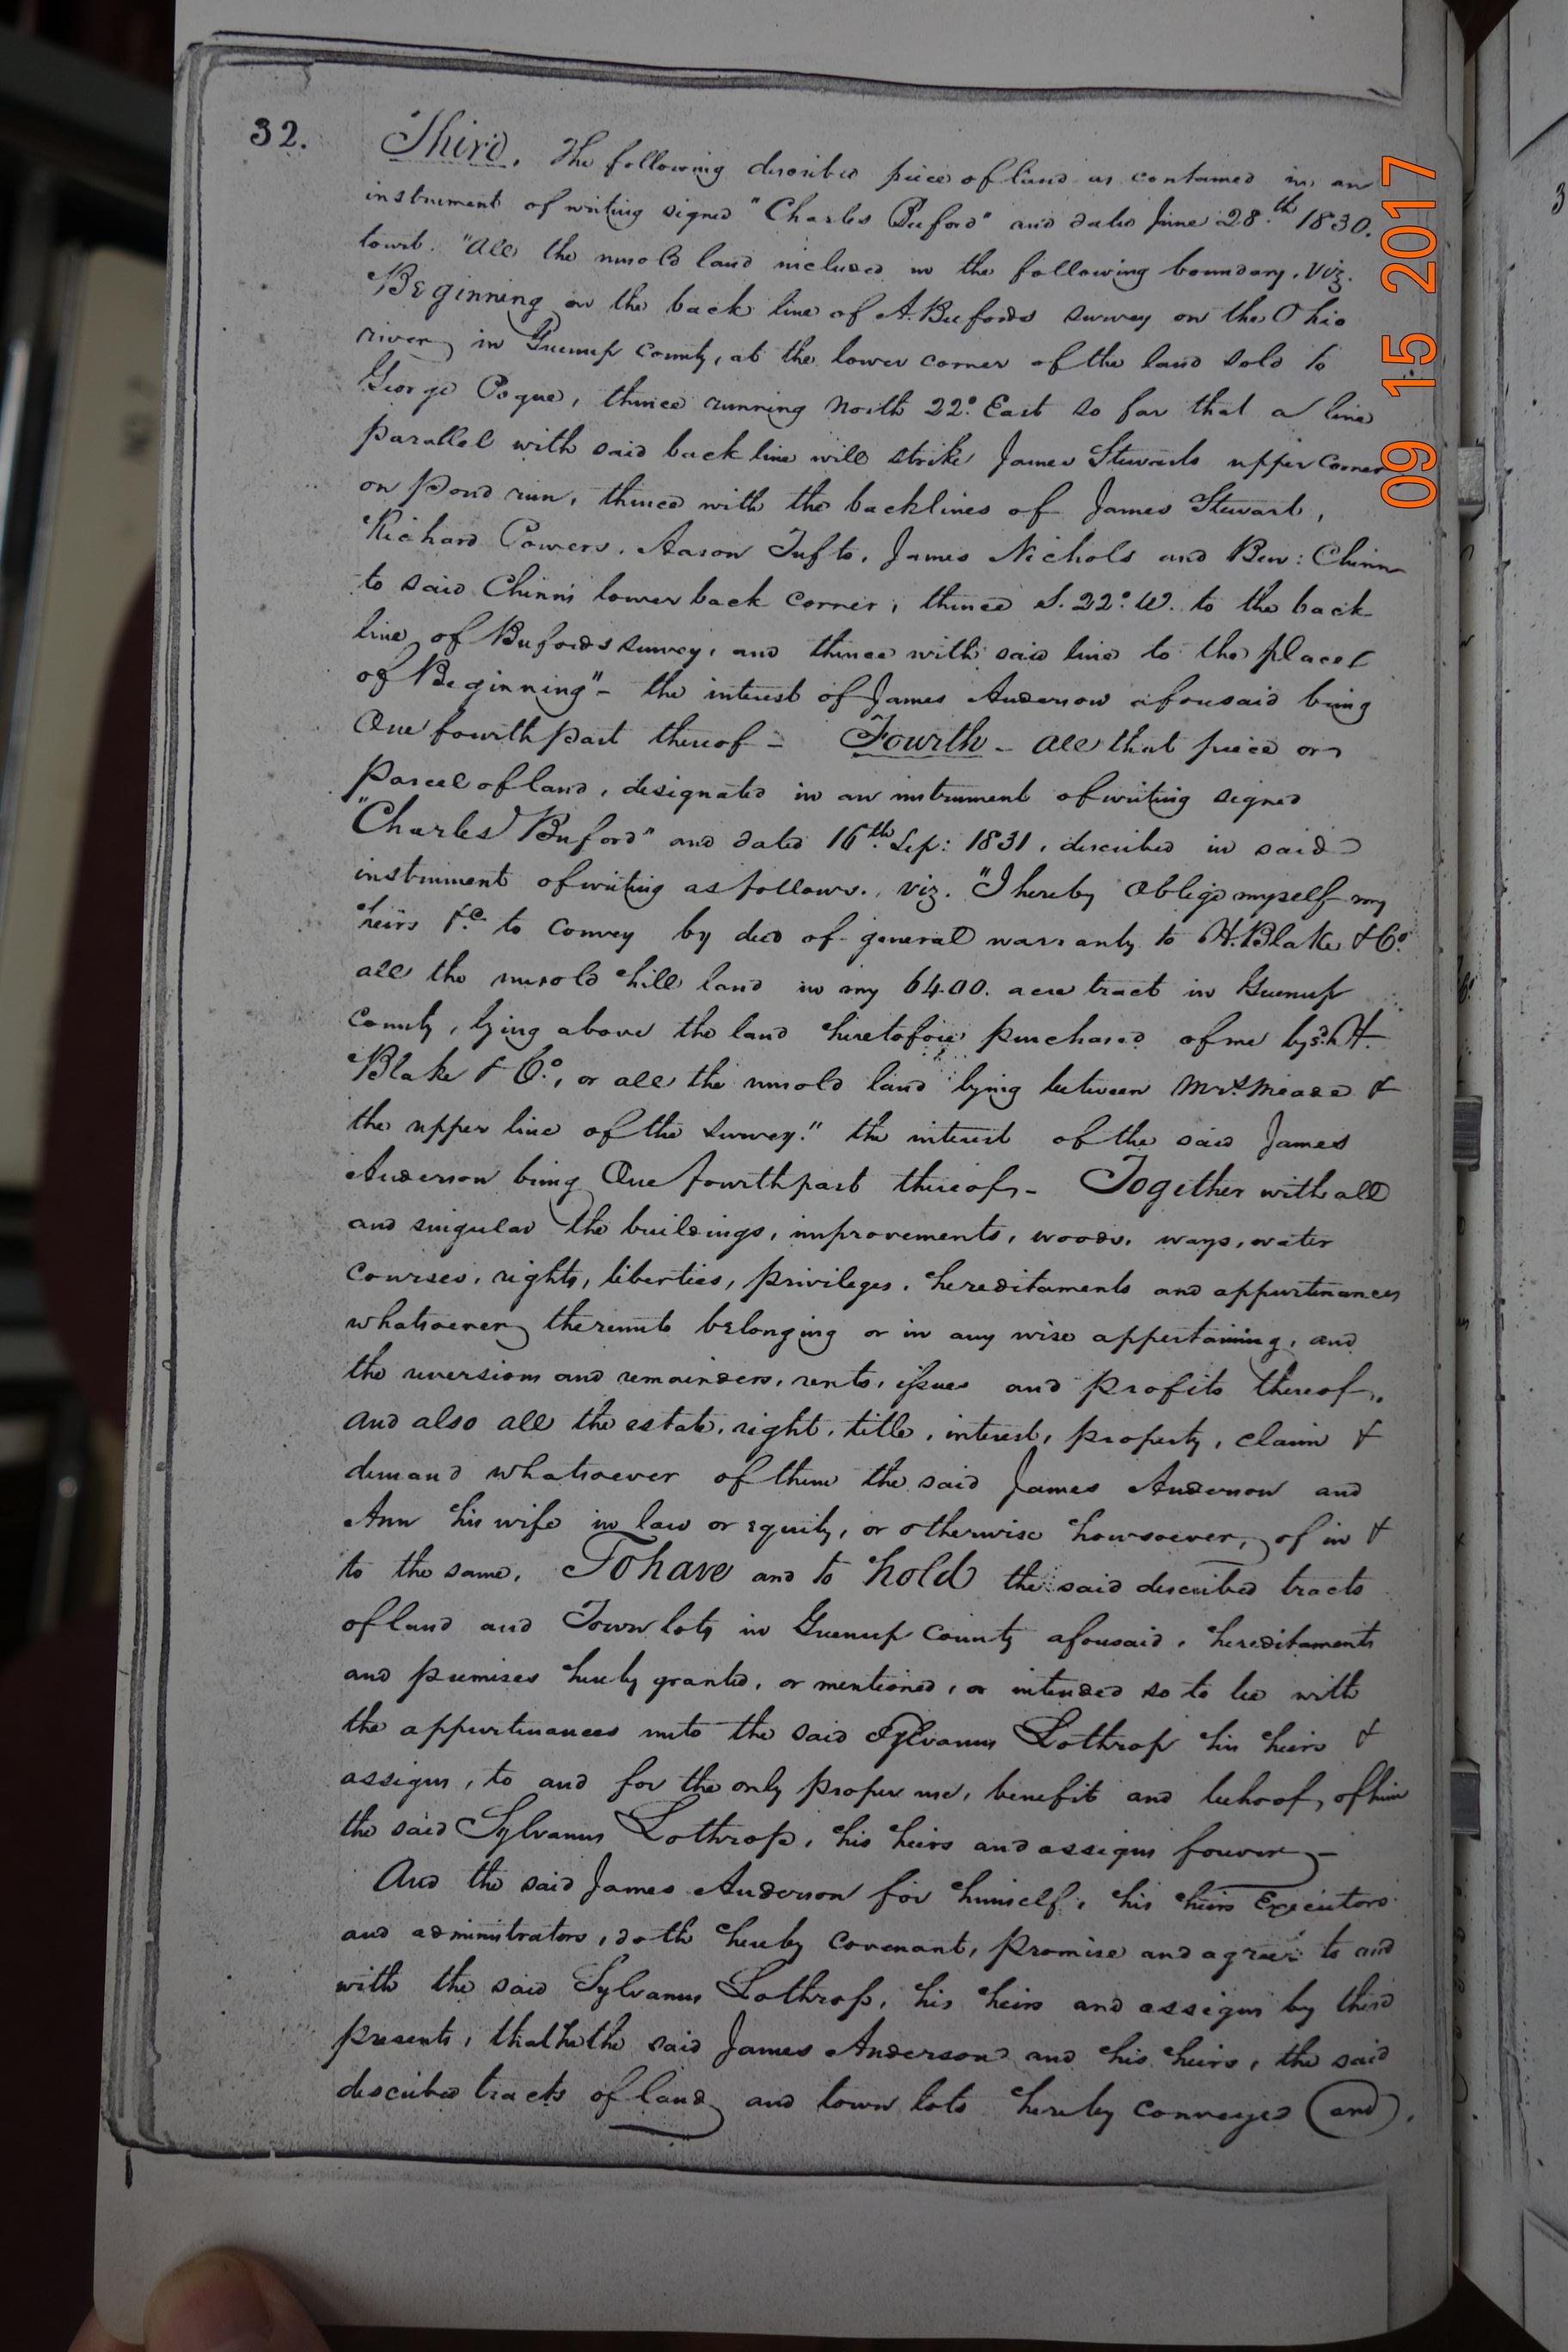 32.
Third. The following described piece of land as contained in an
instrument of writing signed "Charles Buford" and dated June 28.th 1830.
towit. "All the unsold land included in the following boundary, viz.
Beginning on the back line of A. Bufords survey on the Ohio
river in Greenup County, at the lower corner of the land sold to
George Poque, thence running North 22.° East so far that a line
parallel with said back line will strike James Stewarts upper corner
on Pond run, thence with the backlines of James Stewart,
Richard Powers, Aaron Tufts, James Nichols and Ben: Chinn
to said Chinn's lower back corner, thence S. 22.° W. to the back
line of Bufords survey, and thence with said line to the place
of Beginning" - the interest of James Anderson aforesaid being
One fourth part thereof - Fourth - All that piece or
parcel of land, designated in an instrument of writing signed
"Charles Buford" and dated 16th. Sep: 1831, described in said
instrument of writing as follows. viz. "I hereby oblige myself my
heirs &c. to convey by deed of general warranty to H. Blake & Co.
all the unsold hill land in my 6400. acre tract in Greenup
County, lying above the land heretofore purchased of me by sd. H.
Blake & Co., or all the unsold land lying between Mrs. Meade &
the upper line of the survey." the interest of the said James
Anderson being One fourth part thereof - Together with all
and singular the buildings, improvements, woods, ways, water
courses, rights, liberties, privileges, hereditaments and appurtenances
whatsoever thereunto belonging or in any wise appertaining, and
the reversions and remainders, rents, issues and profits thereof,
and also all the estate, right, title, interest, property, claim &
demand whatsoever of them the said James Anderson and
Ann his wife in law or equity, or otherwise howsoever, of in &
to the same. To have and to hold the said described tracts
of land and Town lots in Greenup County aforesaid, hereditaments
and premises hereby granted, or mentioned, or intended so to be with
the appurtenances unto the said Sylvanus Lothrop his heirs &
assigns, to and for the only proper use, benefit and behoof, of him
the said Sylvanus Lothrop, his heirs and assigns forever -
And the said James Anderson for himself, his heirs Executors
and administrators, doth hereby covenant, promise and agree to and
with the said Sylvanus Lothrop, his heirs and assigns by these
presents, that he the said James Anderson and his heirs, the said
described tracts of land and town lots hereby conveyed (and).
09 15 2017